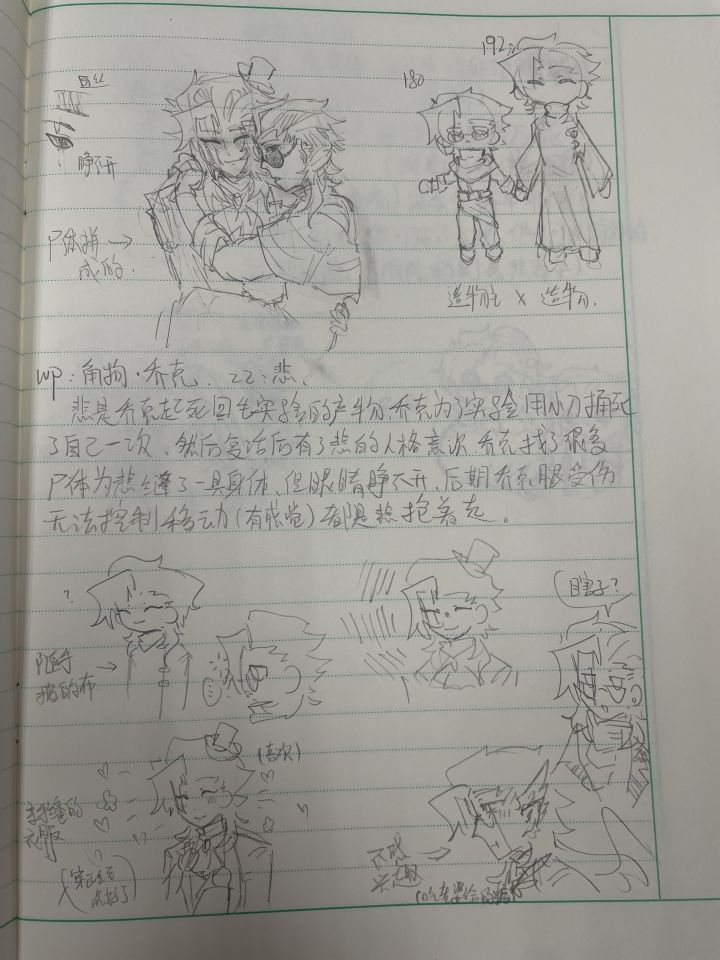 192
180
睁不开
尸体拼
成的.
造物主 X 造物.
wp：角物·乔克、zz：悲、
悲是乔克起死回生实验的产物 乔克为了实验用小刀捅死
了自己一次、然后复活后有了悲的人格意识 乔克找了很多
尸体为悲缝了一具身体、但眼睛睁不开、后期乔克腿受伤
无法控制移动(有感觉)都是悲抱着走。
?
瞎子?
随手
搞的布
(喜欢)
缝的
衣服
不感
兴趣